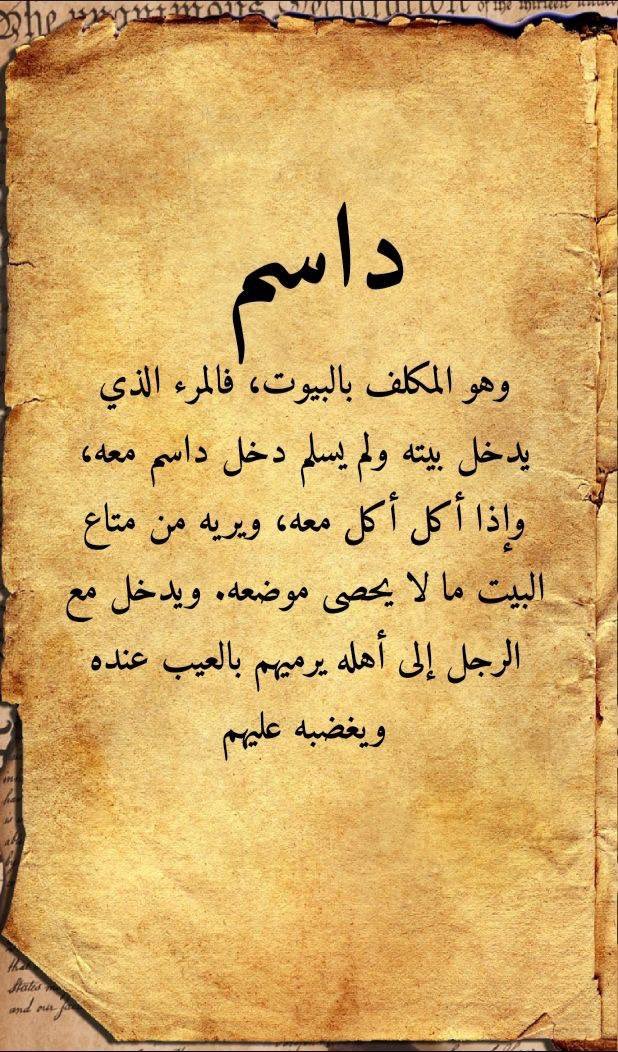 The unanimous Declaration of the thirteen united
داسم
وهو المكلف بالبيوت، فالمرء الذي
يدخل بيته ولم يسلم دخل داسم معه،
وإذا أكل أكل معه، ويريه من متاع
البيت ما لا يحصى موضعه. ويدخل مع
الرجل إلى أهله يرميهم بالعيب عنده
ويغضبه عليهم
that
States
and our